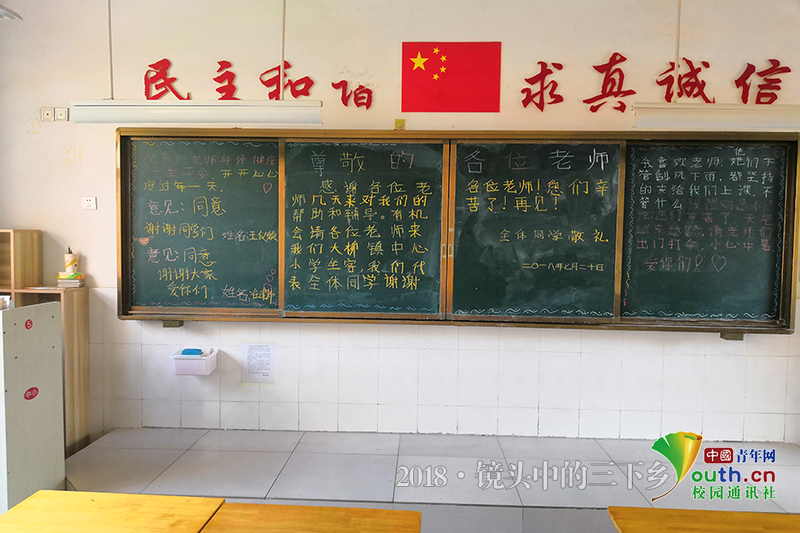 民主和
求真诚信
老师身体健康
开开心心
度过每一天。
意见:同意
谢谢同学们
姓名
意见:同意
谢谢大家
爱你们
姓名
尊敬的
感谢各位老
师几天来对我们的
帮助和辅导。有机
会请各位老师来
我们大柳镇中心
小学坐客,我们代
表全体同学谢谢
各位老师
各位老师!您们辛
苦了!再见!
全体同学敬礼
二〇一八年七月二十日
我喜欢老师,她们不
他
管刮风下雨,都坚持
的来给我们上课,不
管什么
出门打车,小心中暑
爱你们!
5
2018·镜头中的三下乡
中國青年网
Youth.cn
校园通讯社